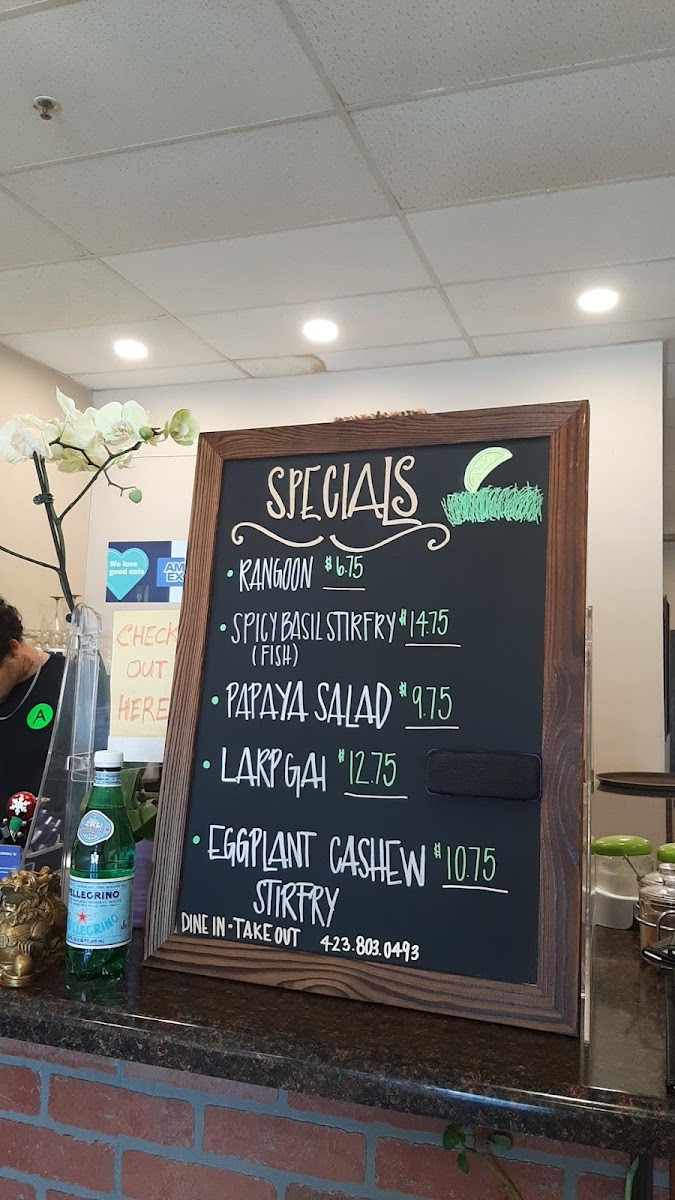 SPECIALS
• RANGOON $6.75
• SPICY BASIL STIRFRY $14.75
(FISH)
• PAPAYA SALAD $9.75
• LARP GAI $12.75
• EGGPLANT CASHEW $10.75
STIRFRY
DINE IN • TAKE OUT 423.803.0493
We love
good eats
AM
EX
CHECK
OUT
HERE
A
PELLEGRINO
PELLEGRINO